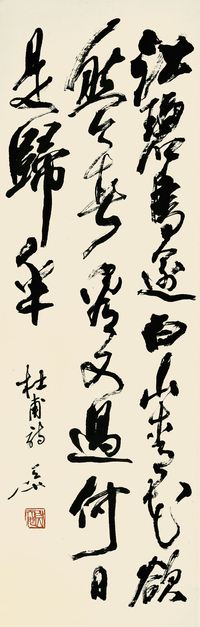 江碧鳥逾白山青花欲
然今春看又過何日
是歸年
杜甫詩